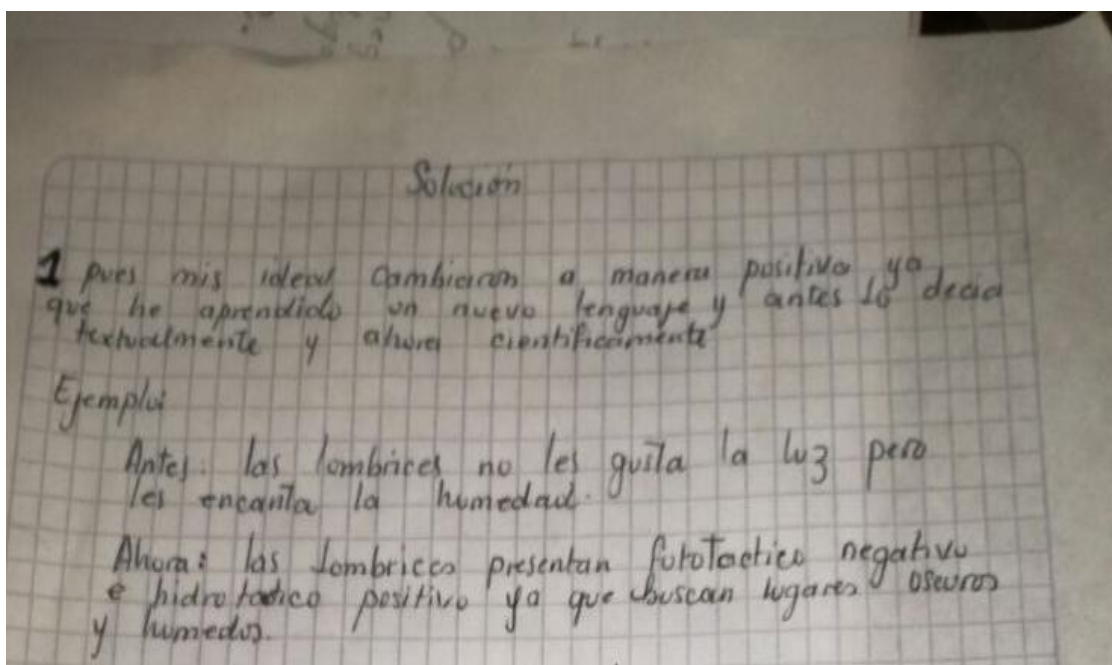 Solución
1 pues mis ideas cambiaron a manera positiva ya
que he aprendido un nuevo lenguaje y antes lo decia
textualmente y ahora cientificamente
Ejemplo:
Antes: las lombrices no les gusta la luz pero
les encanta la humedad.
Ahora: las lombrices presentan fototactico negativo
e hidrotactico positivo ya que buscan lugares oscuros
y humedos.